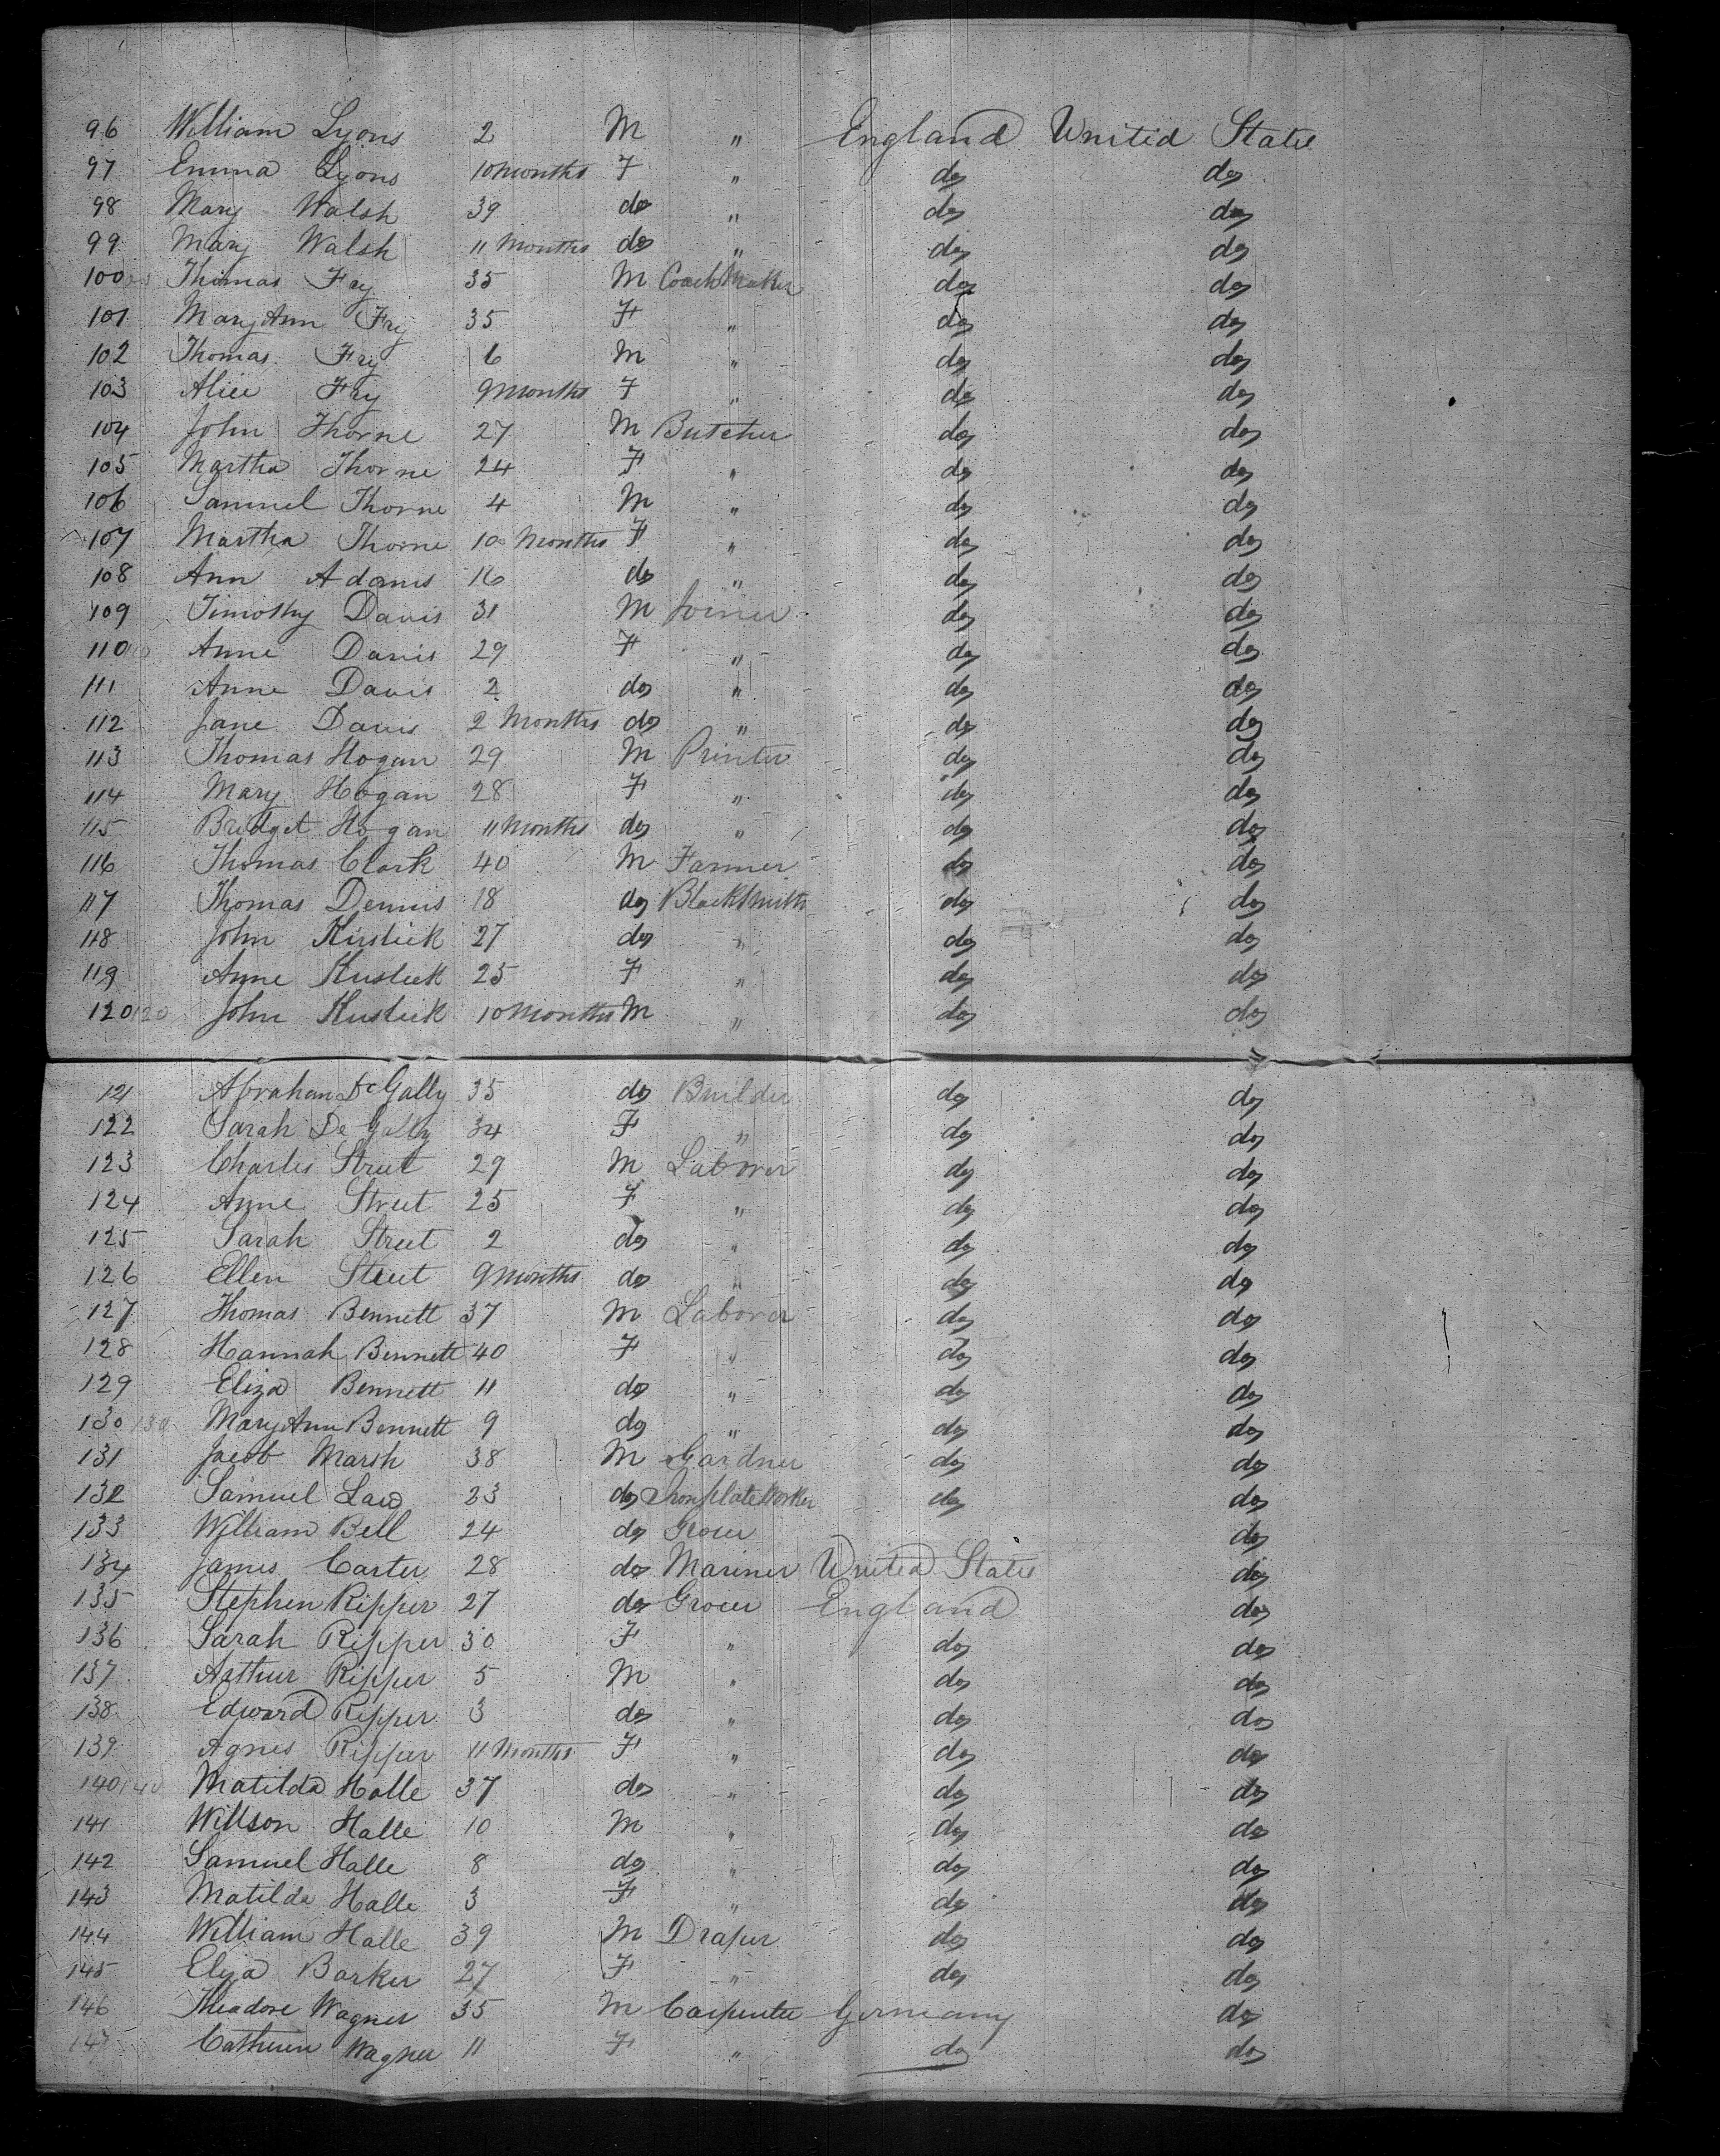 96 William Lyons 2 M " England United States
97 Emma Lyons 10 months F " do do
98 Mary Walsh 39 do " do do
99 Mary Walsh 11 Months do " do do
100 Thomas Fry 35 M Coach Maker do do
101 Mary Ann Fry 35 F " do do
102 Thomas Fry 6 M " do do
103 Alice Fry 9 months F " do do
104 John Thorne 27 M Butcher do do
105 Martha Thorne 24 F " do do
106 Samuel Thorne 4 M " do do
107 Martha Thorne 10 Months F " do do
108 Ann Adams 16 do " do do
109 Timothy Davis 31 M Joiner do do
110 Anne Davis 29 F " do do
111 Anne Davis 2 do " do do
112 Jane Davis 2 Months do " do do
113 Thomas Hogan 29 M Printer do do
114 Mary Hogan 28 F " do do
115 Bridget Hogan 11 Months do " do do
116 Thomas Clark 40 M Farmer do do
117 Thomas Dennis 18 do BlackSmith do do
118 John 27 do " do do
119 Anne 25 F " do do
120 120 John 10 Months M " do do
121 Abraham De Gally 35 do Builder do do
122 Sarah De Gally 34 F " do do
123 Charles Street 29 M Laborer do do
124 Anne Street 25 F " do do
125 Sarah Street 2 do " do do
126 Ellen Street 9 months do " do do
127 Thomas Bennett 37 M Laborer do do
128 Hannah Bennett 40 F " do do
129 Eliza Bennett 11 do " do do
130 130 Mary Ann Bennett 9 do " do do
131 Jacob Marsh 38 M Gardner do do
132 Samuel Law 23 do Iron plate Worker do do
133 William Bell 24 do Grocer do
134 James Carter 28 do Mariner United States do
135 Stephen Ripper 27 do Grocer England do
136 Sarah Ripper 30 F " do do
137 Arthur Ripper 5 M " do do
138 Edward Ripper 3 do " do do
139 Agnes Ripper 11 Months F " do do
140 140 Matilda Halle 37 do " do do
141 Willson Halle 10 M " do do
142 Samuel Halle 8 do " do do
143 Matilda Halle 3 F " do do
144 William Halle 39 M Draper do do
145 Eliza Barker 27 F " do do
146 Theadore Wagner 35 M Carpenter Germany do
147 Catherine Wagner 11 F " do do